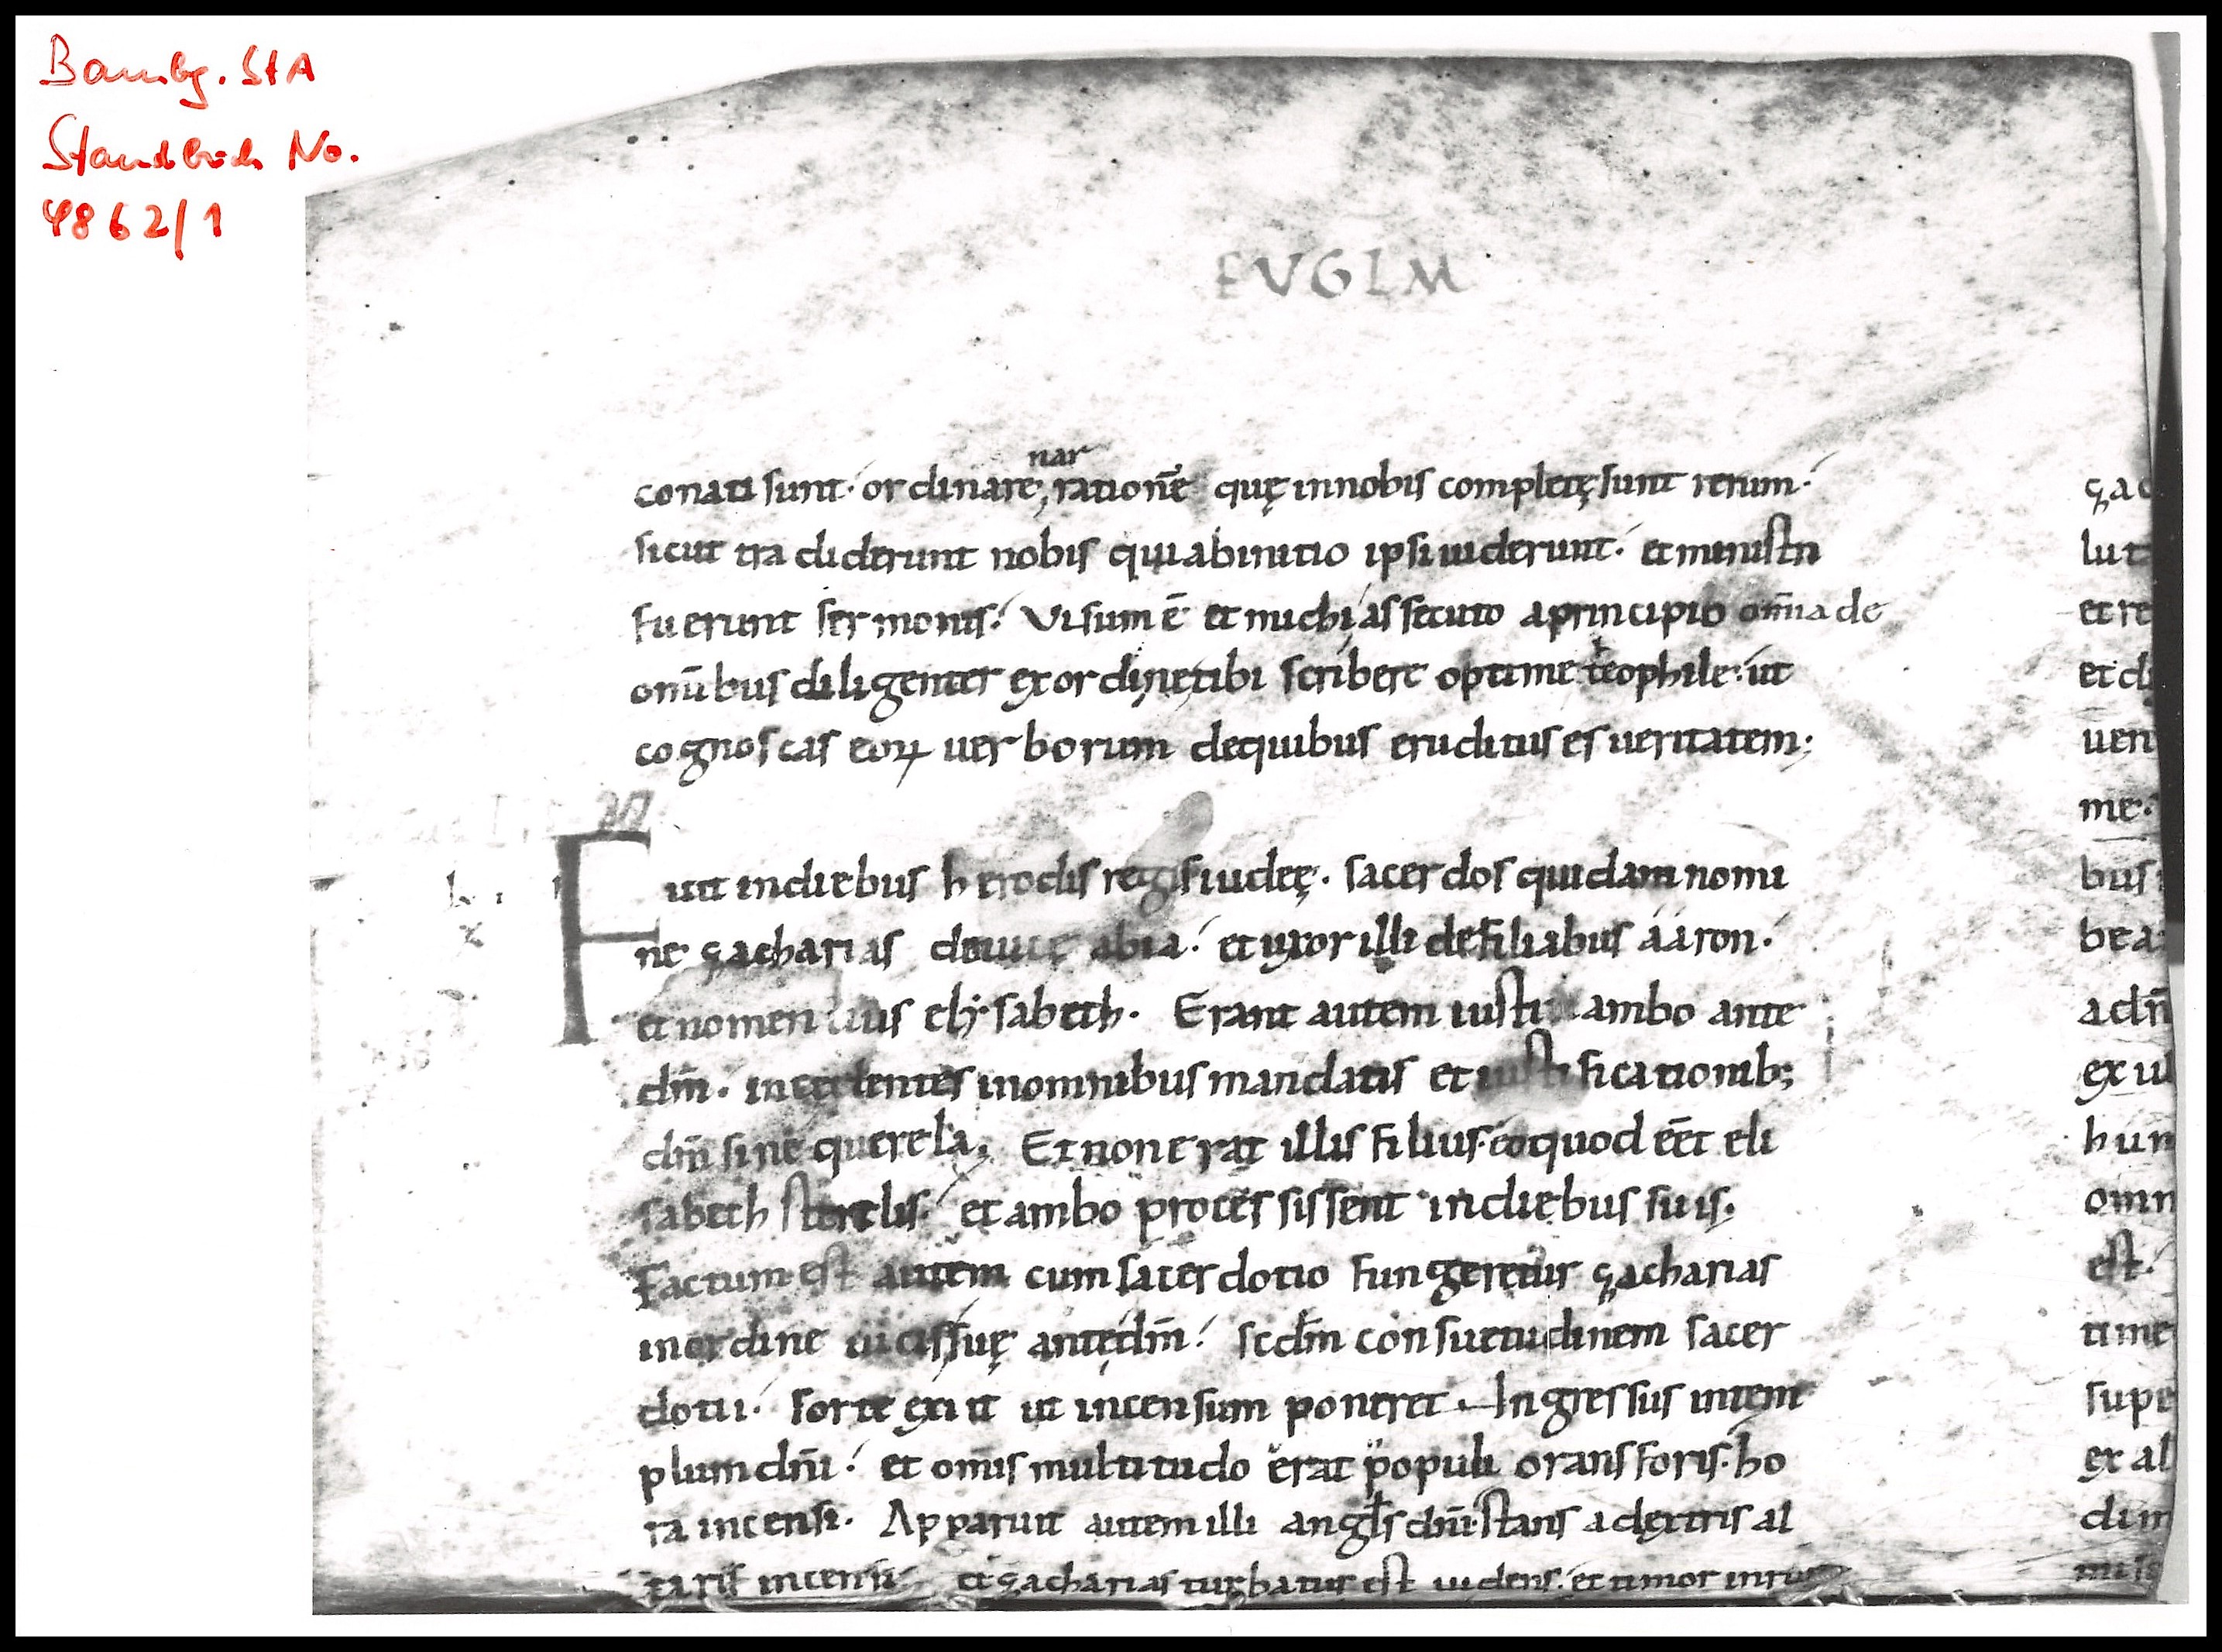 Bambg. StA
Standbuch No.
4862/1
EVGLM
nar
conati sunt· ordinare, rationē quę innobis completę sunt rerum·
sicut tradiderunt nobis qui abinitio ipsi uiderunt· et ministri
fuerunt sermonis· Visum ē et michi assecuto aprincipio om̄ia de
om̄ibus diligenter ex ordinę tibi scribere optime teophile· ut
cognoscas eoꝝ uerborum dequibus eruditus es ueritatem;
Fuit indiebus herodis regis iudeę· sacerdos quidam nomi
ne zacharias deuice abia· et uxor illi defiliabus ááron·
et nomen eius elysabeth· Erant autem iusti ambo ante
dm̄· incedentes inomnibus mandatis et iustificationib;
dn̄i sine querela, Et non erat illis filius· eoquod eēt eli
sabeth sterelis· et ambo processissent indiebus suis.
Factum est autem cum sacerdotio fungeretur zacharias
inordine uicis suę ante dm̄· scdm̄ consuetudinem sacer
dotii· sorte exiit ut incensum poneret· Ingressus intem
plum dn̄i· et om̄is multitudo erat populi orans foris· ho
ra incensi· Apparuit autem illi angls dn̄i· stans adextris al
taris incensi et zacharias turbatus est uidens· et timor inruit
zac
lut
et re
et di
uen
me·
bus
bea
adn̄
exul
hun
omn
est·
time
supe
exal
dim